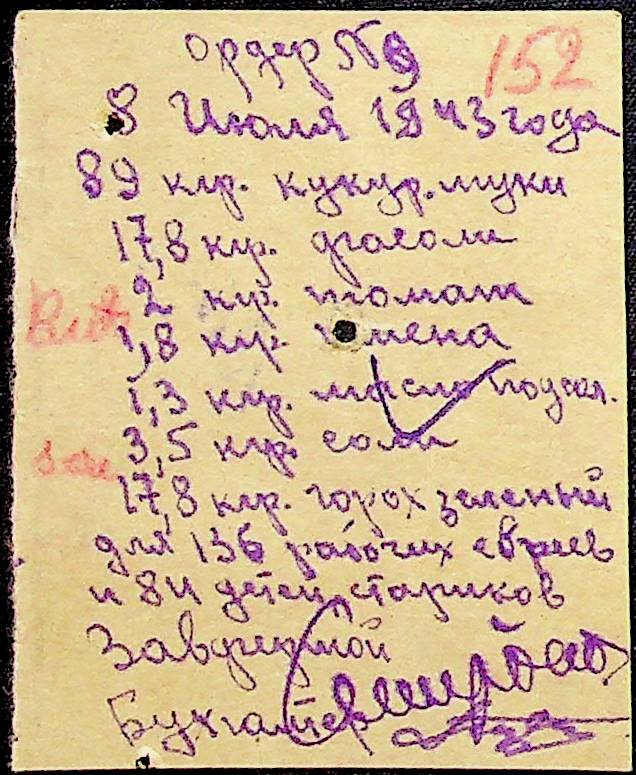 Ордер № 9
152
8 Июля 1943 года
89 клр. кукур. муки
17,8 клр. фасоли
2 клр. томат
1,8 клр.
1,3 клр. масло подсол.
3,5 клр. соли
17,8 клр. горох зеленый
для 136 рабочих евреев
и 84 детей, стариков
Завфермой
Бухгалтер